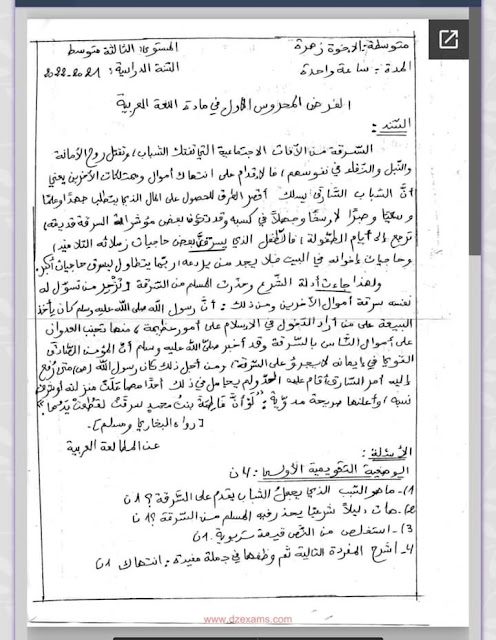 متوسطة: الاخوة زهرة
المستوى: الثالثة متوسط
المدة: ساعة واحدة
السنة الدراسية: 2021-2022
الفرض المحروس الأول في مادة اللغة العربية
السند:
السرقة من الآفات الاجتماعية التي تفتك الشباب، وتقتل روح الأمانة
والنبل والتعفف في نفوسهم، فالإقدام على انتهاك أموال وممتلكات الآخرين يعني
أن الشباب السارق يسلك أقصر الطرق للحصول على المال الذي يتطلب جهدا وعلما
وسعيا وصبرا لا رسخا وجهلا في كسبه وقد تكون بعض مؤشرات السرقة قديمة،
ترجع إلى أيام الطفولة، فالطفل الذي يسرق بعض حاجيات زملائه التلاميذ،
وحاجيات إخوانه في البيت فلا يجد من يردعه، ربما يتطاول ليسرق حاجيات أكبر.
ولهذا جاءت أدلة الشرع وحذرت المسلم من السرقة وتزجر من تسول له
نفسه سرقة أموال الآخرين ومن ذلك: أن رسول الله صلى الله عليه وسلم كان يأخذ
البيعة على من أراد الدخول في الإسلام على أمور عظيمة، منها تجنب العدوان
على أموال الناس بالسرقة وقد أخبر صلى الله عليه وسلم أن المؤمن الصادق
القوي في إيمانه لا يجرؤ على السرقة، ومن أجل ذلك كان رسول الله (ص) متى رفع
إليه أمر السارق أقام عليه الحد ولم يحامل في ذلك أحدا مهما علت منزلته أو شرف
نسبه، وأعلنها صريحة مدوية: "لو أن فاطمة بنت محمد سرقت لقطعت يدها"
[رواه البخاري ومسلم].
عن المطالعة العربية
الأسئلة:
الوضعية التقويمية الأولى: 4ن
1)- ما هو السبب الذي يجعل الشباب يقدم على السرقة؟ 1ن
2)- هات دليلا شرعيا يحذر فيه المسلم من السرقة؟ 1ن
3)- استخلص من النص قيمة تربوية. 1ن
4- اشرح المفردة التالية ثم وظفها في جملة مفيدة: انتهاك 1ن
www.dzexams.com